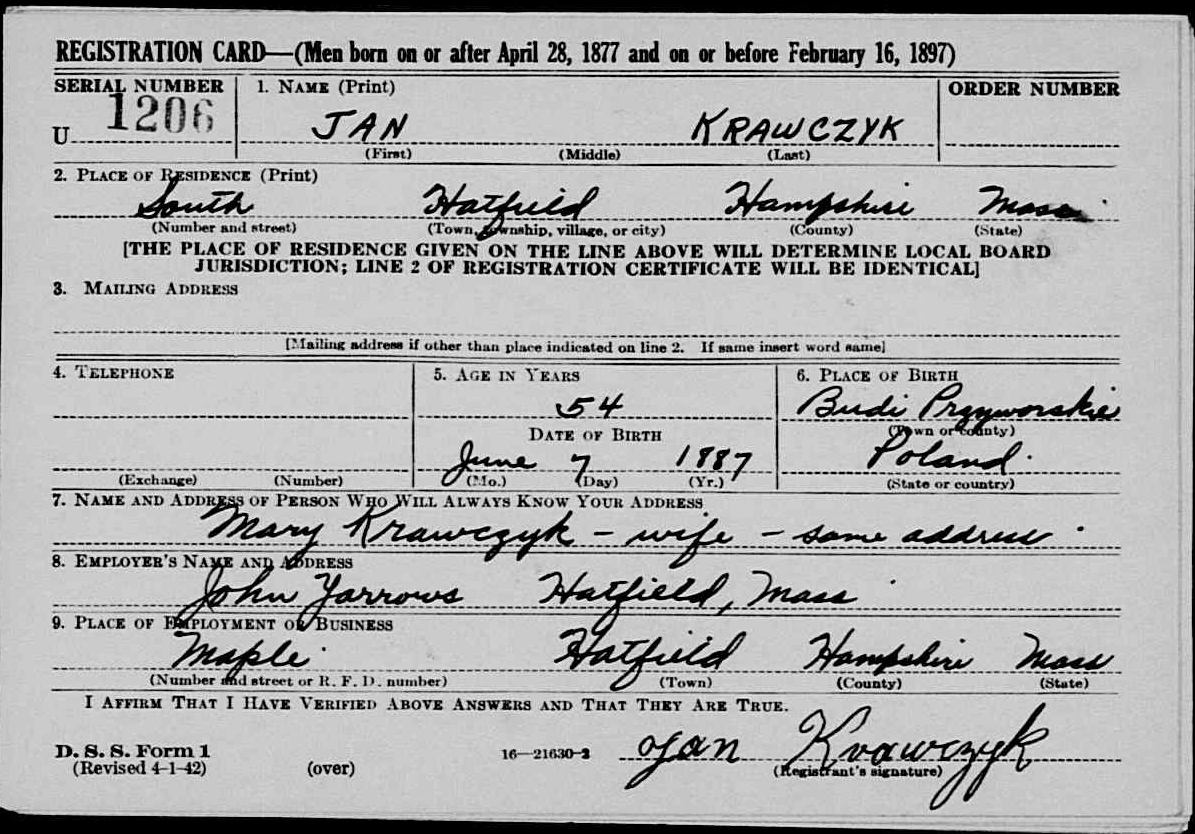 REGISTRATION CARD—(Men born on or after April 28, 1877 and on or before February 16, 1897)
SERIAL NUMBER
1. NAME (Print)
ORDER NUMBER
U 1206
JAN KRAWCZYK
(First) (Middle) (Last)
2. PLACE OF RESIDENCE (Print)
South Hatfield Hampshire Mass
(Number and street) (Town, township, village, or city) (County) (State)
[THE PLACE OF RESIDENCE GIVEN ON THE LINE ABOVE WILL DETERMINE LOCAL BOARD
JURISDICTION; LINE 2 OF REGISTRATION CERTIFICATE WILL BE IDENTICAL]
3. MAILING ADDRESS
[Mailing address if other than place indicated on line 2. If same insert word same]
4. TELEPHONE
5. AGE IN YEARS
6. PLACE OF BIRTH
54
Budi Przyworskie
(Town or county)
DATE OF BIRTH
June 7 1887
Poland.
(Exchange) (Number)
(Mo.) (Day) (Yr.)
(State or country)
7. NAME AND ADDRESS OF PERSON WHO WILL ALWAYS KNOW YOUR ADDRESS
Mary Krawczyk – wife – same address.
8. EMPLOYER'S NAME AND ADDRESS
John Yarrows Hatfield, Mass
9. PLACE OF EMPLOYMENT OR BUSINESS
Maple Hatfield Hampshire Mass
(Number and street or R. F. D. number) (Town) (County) (State)
I AFFIRM THAT I HAVE VERIFIED ABOVE ANSWERS AND THAT THEY ARE TRUE.
Jan Krawczyk
D. S. S. Form 1
(Revised 4-1-42) (over) 16—21630-2 (Registrant's signature)